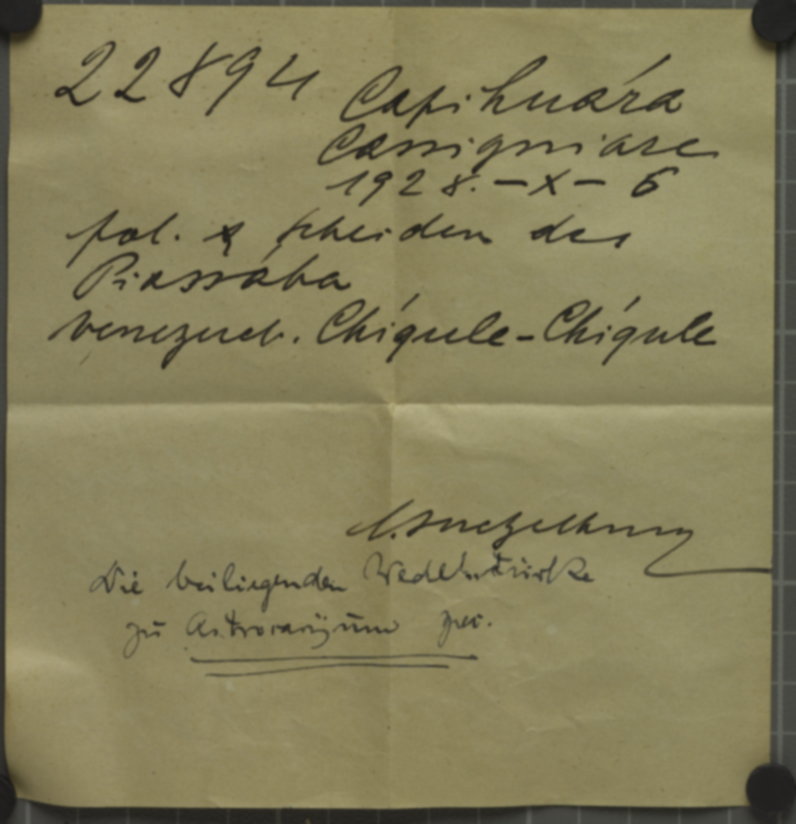 22894 Capihuára
Cassiquiare
1928.-X-6
fol. & scheiden des
Piassába
venezuel. Chíquele-Chíquele
Ph. von Luetzelburg
Die beiliegenden Wedelstücke
zu Astrocaryum spec.